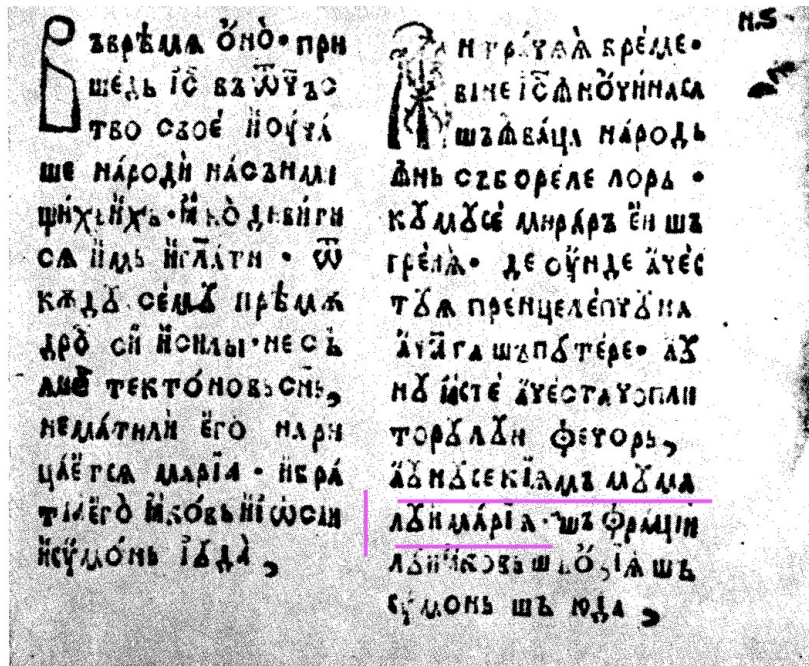 Въврѣмѧ ѻ҆но̀· при
ше́дь і҆с҃ въ ѿч҃ъс
тво своѐ и҆ оу҆чá
ше нáроди нáсънми
щи́хь и҆́хъ· ꙗ҆́кò диви́ти
сѧ и҆мь и҆ гл҃áти · ѿ
кѫдꙋ се́мꙋ прѣмѫ
дрò сїи и҆си́лы· не съ
тектóновьсн҃ь,
немáтили е҆гò нари
цáе҆тсѧ марїа · и҆брá
тїа е҆гò ꙗ҆ковьи҆ і҆ѡсїи
и҆сѷмóнь і҆ꙋдà,
време·
вине і҆с҃ ꙟнѻ҆чинаса
шъꙟвъца нáродь
ꙟнь събореле лорь ·
кꙋмꙋсе́ мирарѫ е҆и шъ
греиѧ· де оу҆нде а҆че́с
тꙋѧ пренцеле́пчꙋна
а҆чáга шъпꙋте́ре· а҆ꙋ
нꙋ ꙗ҆сте́ а҆че́стачопли
торꙋлꙋи феторь,
а҆ꙋ нꙋсекїамъ мꙋма
лꙋи мáрїа· шъ фрáций
лꙋи ꙗ҆ковь шъ ѻ҆сїѧ шъ
сѷмонь шъ юда ,